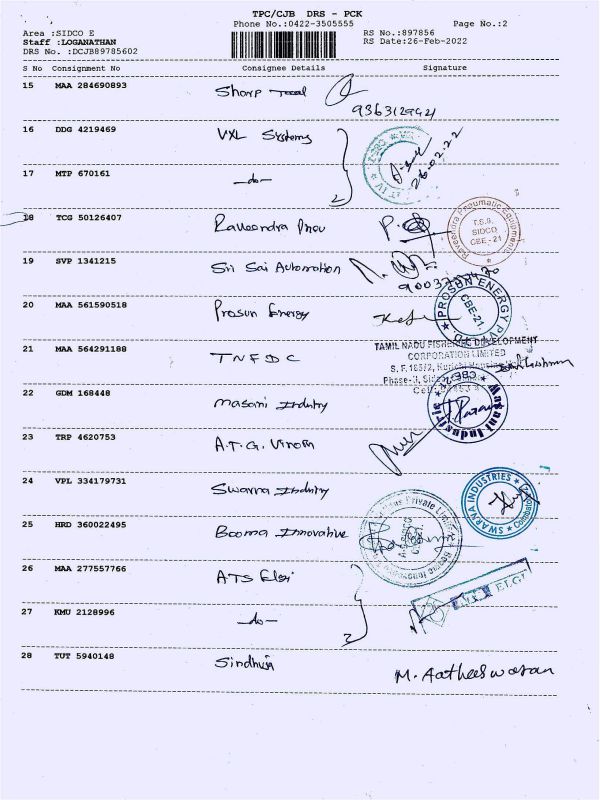 TPC/CJB DRS - PCK
Phone No.:0422-3505555 Page No.:2
Area :SIDCO E RS No.:897856
Staff :LOGANATHAN RS Date:26-Feb-2022
DRS No. :DCJB89785602
S No Consignment No Consignee Details Signature
15 MAA 284690893 Sharp Tool
9363129421
16 DDG 4219469 VXL Systems
26.02.22
17 MTP 670161 -do-
2
18 TCG 50126407 Raveendra Pneu
Raveendra Pneumatic Equipments
T.S.9.
SIDCO
CBE - 21
19 SVP 1341215 Sri Sai Automation
20 MAA 561590518 Prosun Energy
PROSUN ENERGY PVT
CBE-21.
21 MAA 564291188 TNFDC
TAMIL NADU FISHERIES DEVELOPMENT
CORPORATION LIMITED
22 GDM 168448 Masani Industry
Masani Industries
23 TRP 4620753 A.T.G. Virom
24 VPL 334179731 Swarna Industry
SWARNA INDUSTRIES
Coimbatore
25 HRD 360022495 Booma Innovative
Private Limited
26 MAA 277557766 ATS Elgi
ELGI
27 KMU 2128996 -do-
2
28 TUT 5940148 Sindhuja
M. Aatheeswaran